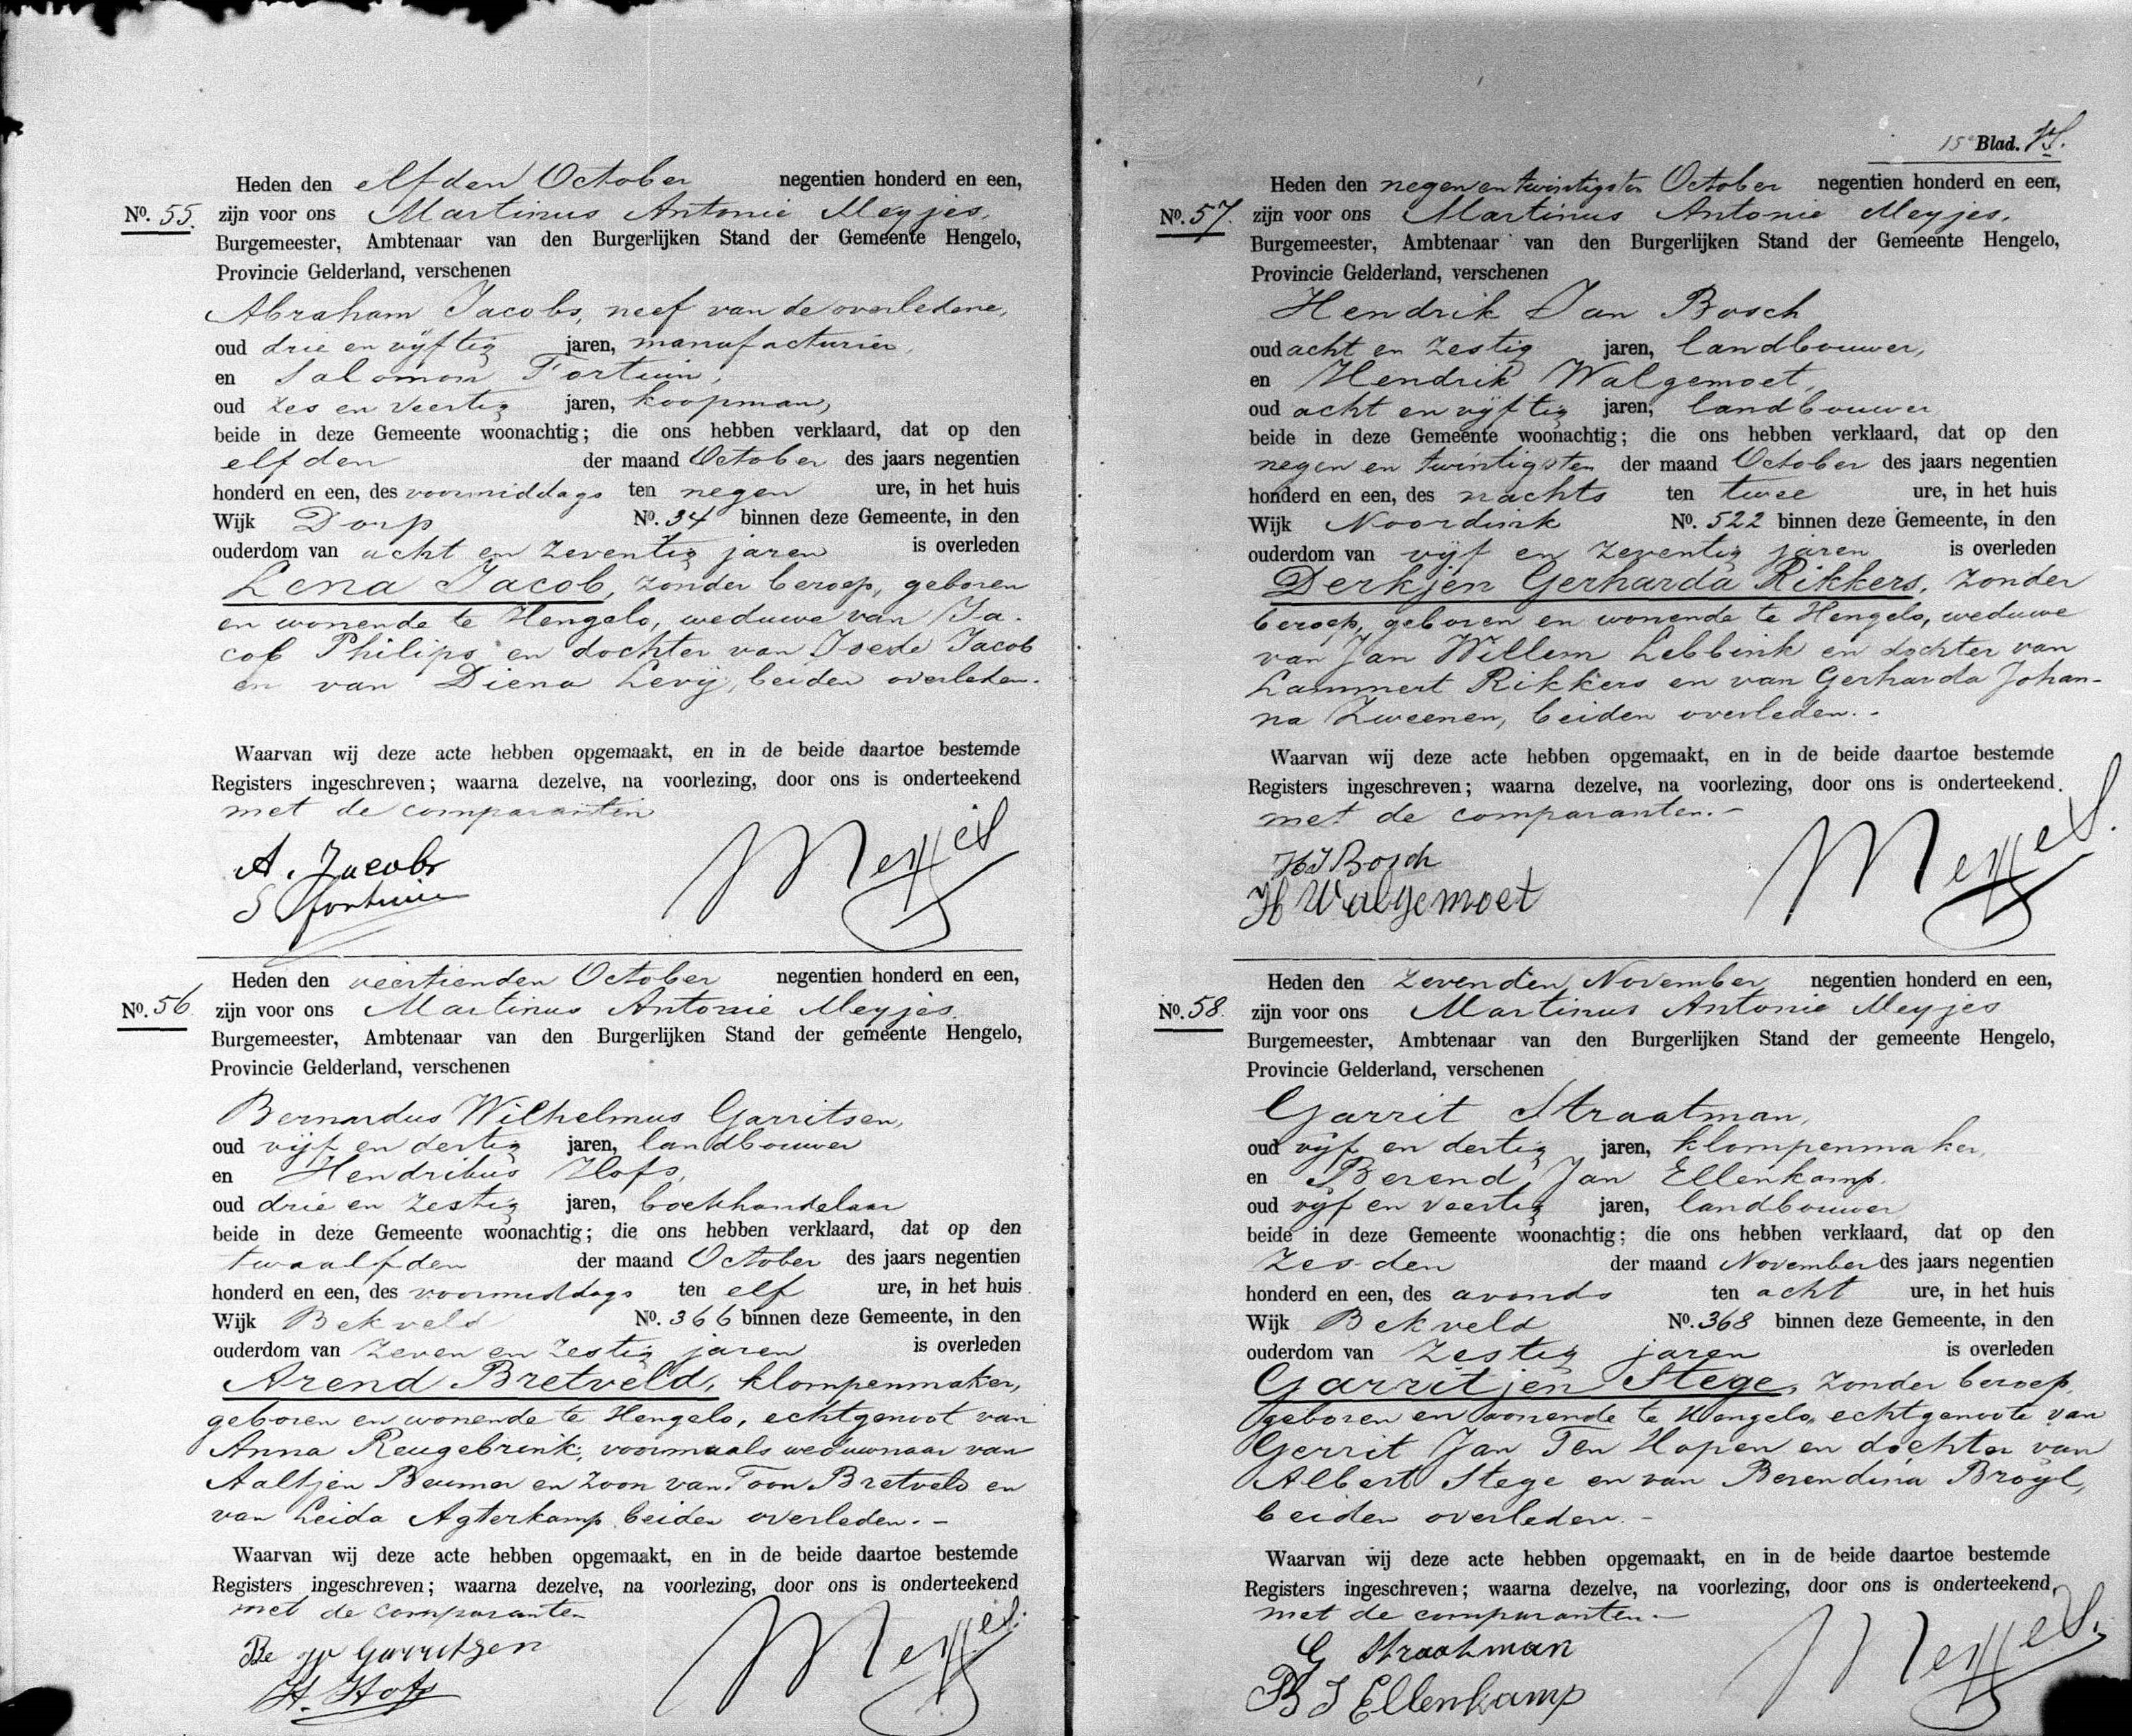 Heden den elfden October negentien honderd en een,
No. 55. zijn voor ons Martinus Antonie Meyjes,
Burgemeester, Ambtenaar van den Burgerlijken Stand der Gemeente Hengelo,
Provincie Gelderland, verschenen
Abraham Jacobs, neef van de overledene,
oud drie en vijftig jaren, manufacturier,
en Salomon Fortuin,
oud zes en veertig jaren, koopman,
beide in deze Gemeente woonachtig; die ons hebben verklaard, dat op den
elfden der maand October des jaars negentien
honderd en een, des voormiddags ten negen ure, in het huis
Wijk Dorp No. 34 binnen deze Gemeente, in den
ouderdom van acht en zeventig jaren is overleden
Lena Jacob, zonder beroep, geboren
en wonende te Hengelo, weduwe van Ja-
cob Philips en dochter van Isede Jacob
en van Diena Levij, beiden overleden.
Waarvan wij deze acte hebben opgemaakt, en in de beide daartoe bestemde
Registers ingeschreven; waarna dezelve, na voorlezing, door ons is onderteekend
met de comparanten
A. Jacobs
S Fortuin
Meyjes
Heden den veertienden October negentien honderd en een,
No. 56 zijn voor ons Martinus Antonie Meyjes.
Burgemeester, Ambtenaar van den Burgerlijken Stand der gemeente Hengelo,
Provincie Gelderland, verschenen
Bernardus Wilhelmus Garritsen,
oud vijf en dertig jaren, landbouwer
en Hendrikus Hofs,
oud drie en zestig jaren, boekhandelaar
beide in deze Gemeente woonachtig; die ons hebben verklaard, dat op den
twaalfden der maand October des jaars negentien
honderd en een, des voormiddags ten elf ure, in het huis
Wijk Bekveld No. 366 binnen deze Gemeente, in den
ouderdom van zeven en zestig jaren is overleden
Arend Bretveld, klompenmaker,
geboren en wonende te Hengelo, echtgenoot van
Anna Reugebrink, voormaals weduwnaar van
Aaltjen Beumer en zoon van Toon Bretveld en
van Leida Agterkamp beiden overleden. -
Waarvan wij deze acte hebben opgemaakt, en in de beide daartoe bestemde
Registers ingeschreven; waarna dezelve, na voorlezing, door ons is onderteekend
met de comparanten
Be W Garritsen
H. Hofs
Meyjes.
15e Blad.
Heden den negen en twintigsten October negentien honderd en een,
No. 57. zijn voor ons Martinus Antonie Meyjes.
Burgemeester, Ambtenaar van den Burgerlijken Stand der Gemeente Hengelo,
Provincie Gelderland, verschenen
Hendrik Jan Bosch
oud acht en zestig jaren, landbouwer,
en Hendrik Walgemoet,
oud acht en vijftig jaren, landbouwer
beide in deze Gemeente woonachtig; die ons hebben verklaard, dat op den
negen en twintigsten der maand October des jaars negentien
honderd en een, des nachts ten twee ure, in het huis
Wijk Noordink No. 522 binnen deze Gemeente, in den
ouderdom van vijf en zeventig jaren is overleden
Derkjen Gerharda Rikkers, zonder
beroep, geboren en wonende te Hengelo, weduwe
van Jan Willem Lebbink en dochter van
Lammert Rikkers en van Gerharda Johan-
na Zweenen, beiden overleden. -
Waarvan wij deze acte hebben opgemaakt, en in de beide daartoe bestemde
Registers ingeschreven; waarna dezelve, na voorlezing, door ons is onderteekend.
met de comparanten. -
HJ Bosch
H Walgemoet
Meyjes.
Heden den zevenden November negentien honderd en een,
No. 58. zijn voor ons Martinus Antonie Meyjes
Burgemeester, Ambtenaar van den Burgerlijken Stand der gemeente Hengelo,
Provincie Gelderland, verschenen
Garrit Straatman,
oud vijf en dertig jaren, klompenmaker,
en Berend Jan Ellenkamp.
oud vijf en veertig jaren, landbouwer
beide in deze Gemeente woonachtig; die ons hebben verklaard, dat op den
zesden der maand November des jaars negentien
honderd en een, des avonds ten acht ure, in het huis
Wijk Bekveld No. 368 binnen deze Gemeente, in den
ouderdom van zestig jaren is overleden
Garritjen Stege, zonder beroep,
geboren en wonende te Hengelo, echtgenoote van
Gerrit Jan Ten Hopen en dochter van
Albert Stege en van Berendina Brogl,
beiden overleden. -
Waarvan wij deze acte hebben opgemaakt, en in de beide daartoe bestemde
Registers ingeschreven; waarna dezelve, na voorlezing, door ons is onderteekend,
met de comparanten. -
G Straatman
B J Ellenkamp
Meyjes.